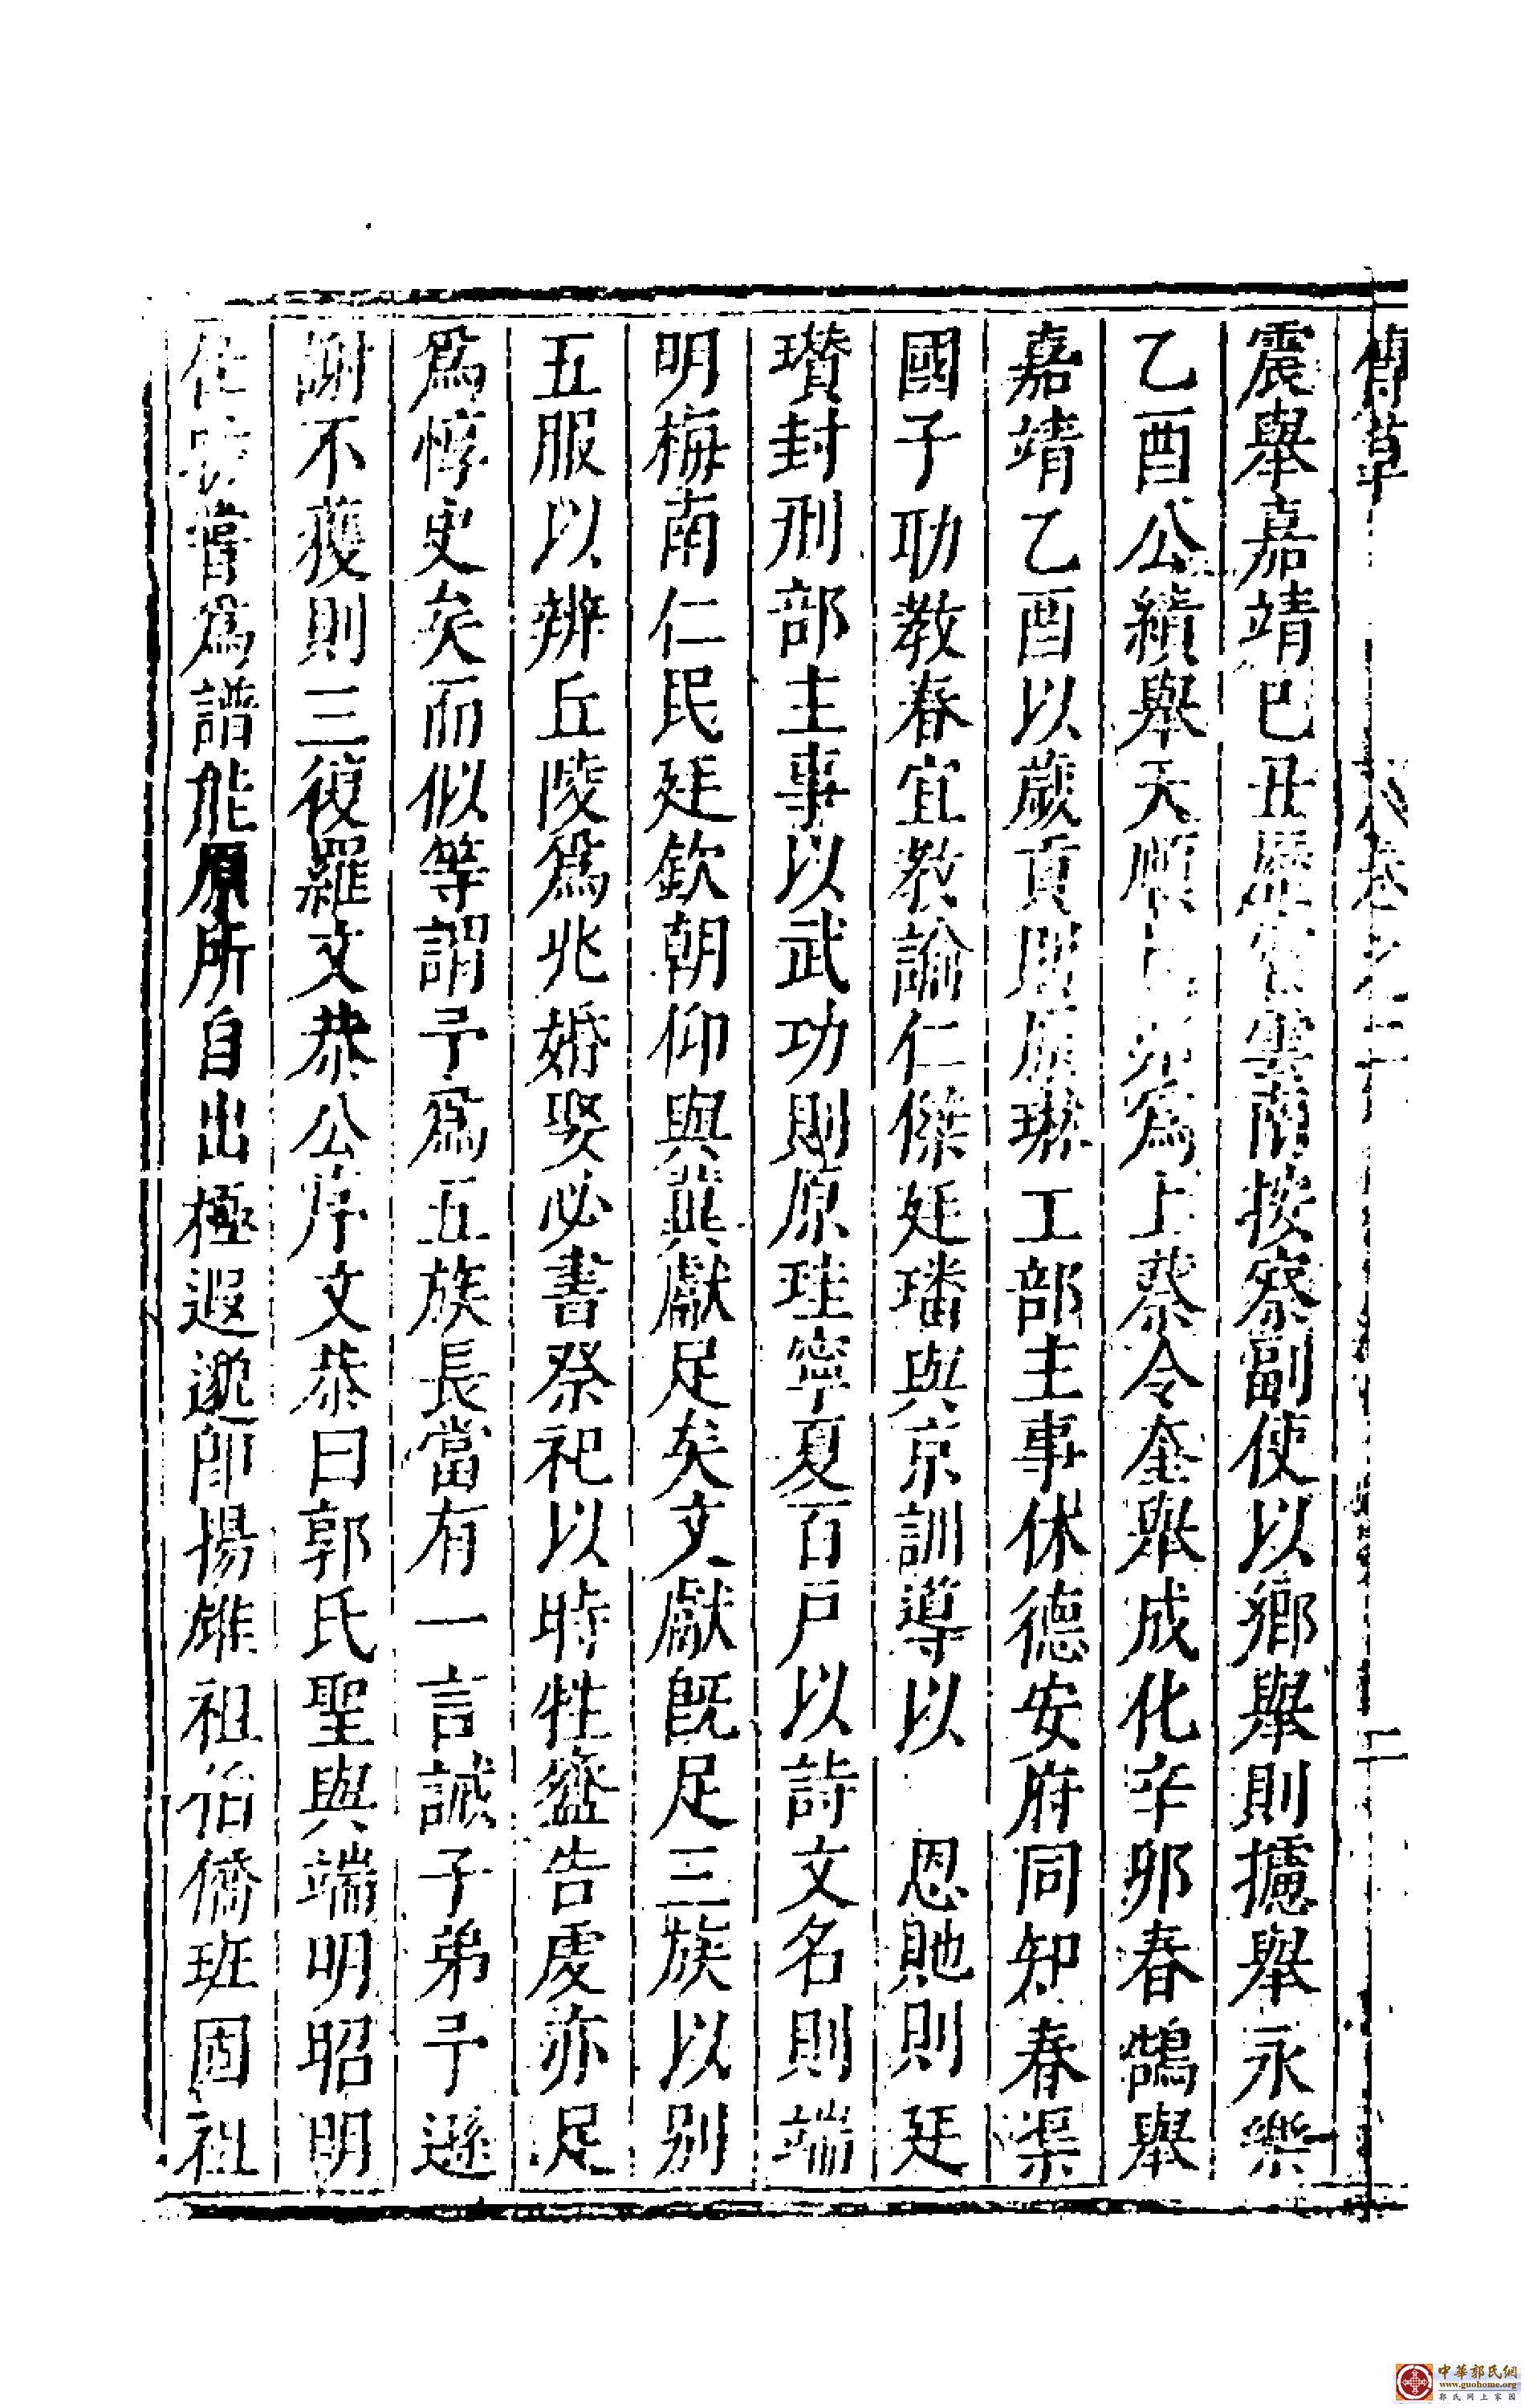 傳草 卷之二 二
震舉嘉靖已丑歷官雲南按察副使以鄉舉則攄舉永樂
乙酉公績舉天順 卯為上蔡令奎舉成化辛卯春鵠舉
嘉靖乙酉以歲貢則原琳工部主事休德安府同知春渠
國子助教春宜教諭仁傑廷璠與京訓導以 恩貤則廷
瓚封刑部主事以武功則原珪寧夏百戶以詩文名則端
明梅南仁民廷欽朝仰與冀獻足矣文獻旣足三族以別
五服以辨丘陵爲兆婚娶必書祭祀以時牲齍告虔亦足
爲惇史矣而似等謂予爲五族長當有一言誡子弟予遜
謝不獲則三復羅文恭公序文恭曰郭氏聖與端明昭明
嘗爲譜能原所自出極遐邈卽揚雄祖伯僑班固祖
中華郭氏網
www.guohome.org
郭氏网上家园